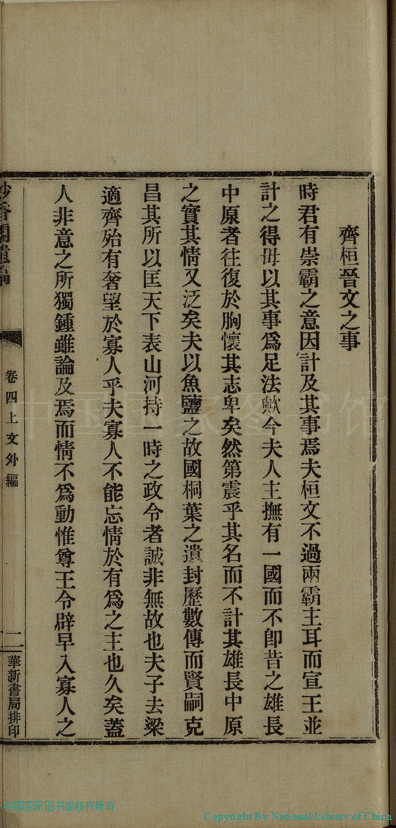 齊桓晉文之事
時君有崇霸之意因計及其事焉夫桓文不過兩霸王耳而宣王並
計之得毋以其事爲足法歟今夫人主撫有一國而不卽昔之雄長
中原者往復於胸懷其志卑矣然第震乎其名而不計其雄長中原
之實其情又泛矣夫以魚鹽之故國桐葉之遺封歷數傳而賢嗣克
昌其所以匡天下表山河持一時之政令者誠非無故也夫子去梁
適齊殆有奢望於寡人乎夫寡人不能忘情於有爲之主也久矣蓋
人非意之所獨鍾雖論及焉而情不爲動惟尊王令辟早入寡人之
卷四上文外編
二
華新書局排印
中国国家图书馆
中国国家图书馆版权所有
Copyright By National Library of China